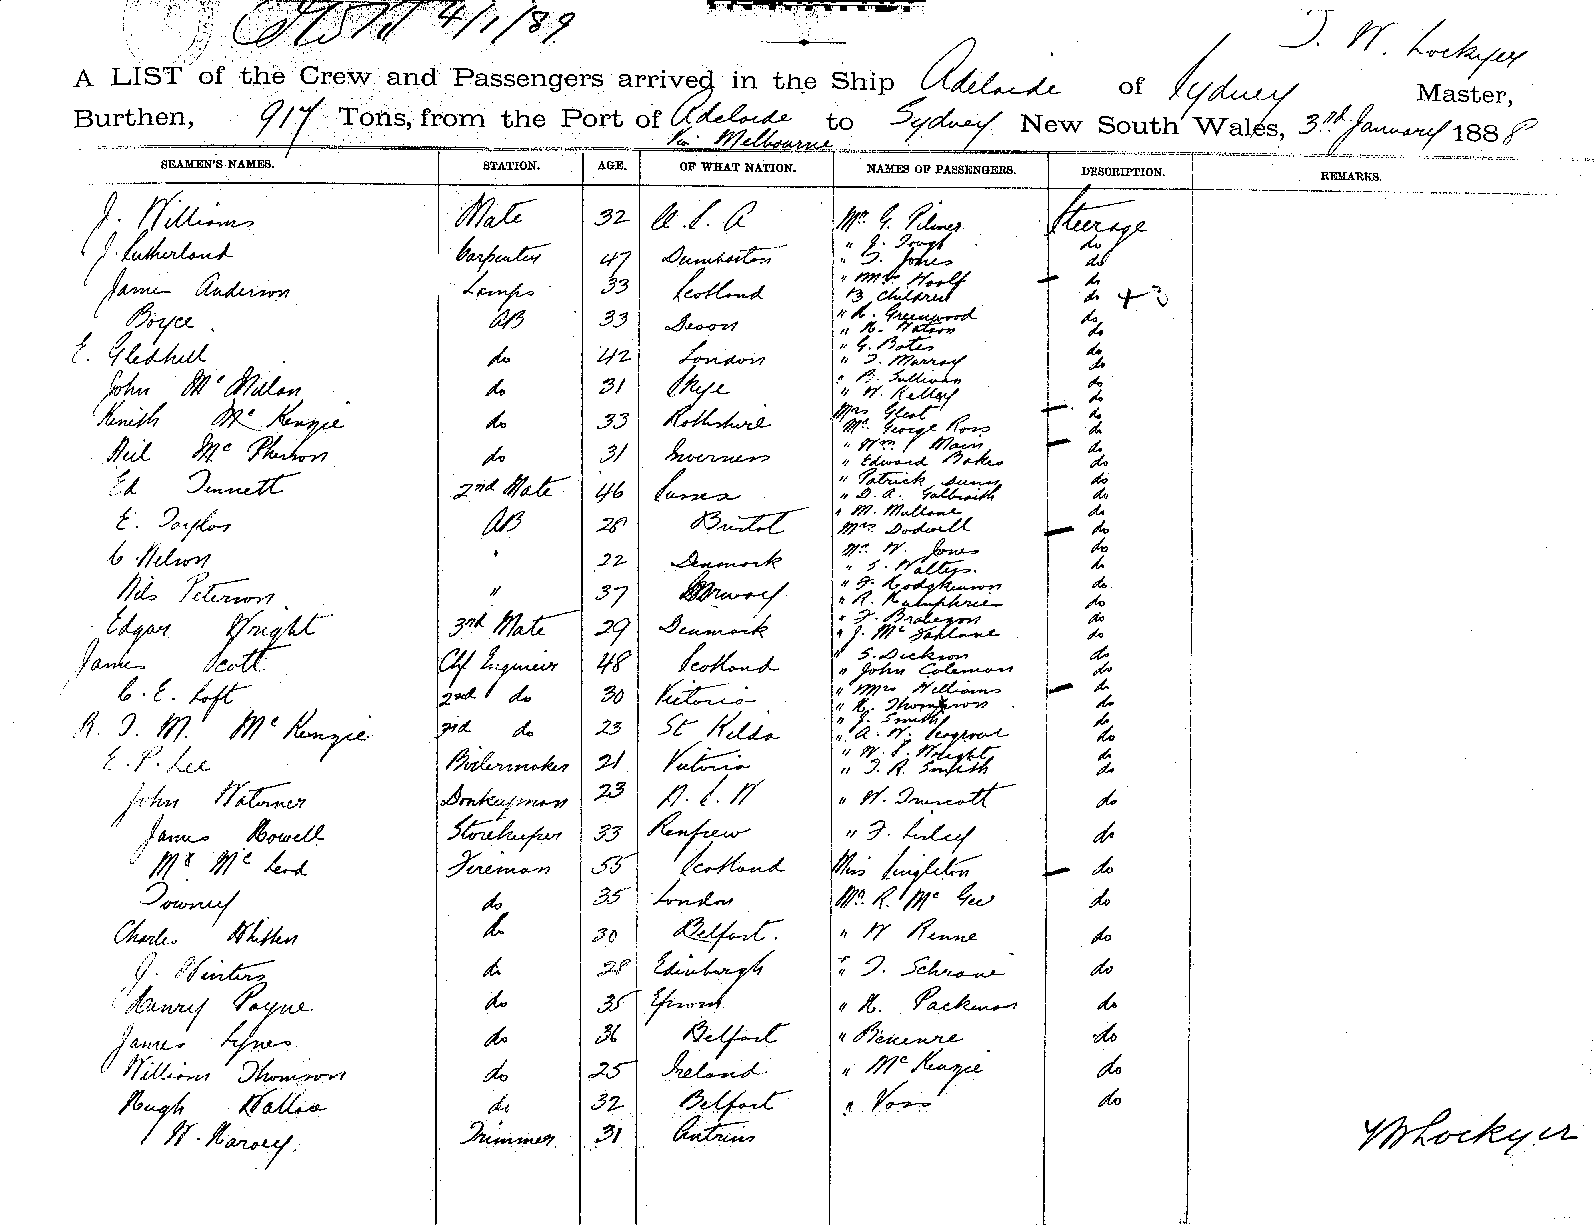 4/1/89
T. W. Lockyer
A LIST of the Crew and Passengers arrived in the Ship Adelaide of Sydney Master,
Burthen, 917 Tons, from the Port of Adelaide to Sydney New South Wales, 3rd January 1888
Via Melbourne
SEAMEN'S NAMES. STATION. AGE. OF WHAT NATION. NAMES OF PASSENGERS. DESCRIPTION. REMARKS.
J. Williams Mate 32 U. S. A Mr G. Pilmer Steerage
" J. Gough do
J. Sutherland Carpenter 47 Dumbarton " T. Jones do
" Mrs Hoolf do
James Anderson Lamps 33 Scotland 3 children do + 3
" H. Greenwood do
Boyce AB 33 Devon " H. Watson do
" G. Bates do
E. Gledhill do 42 London " T. Murray do
" B. Sullivan do
John McMillan do 31 Skye " W. Kelley do
Mrs Gleat do
Kenith McKenzie do 33 Rothshire Mr George Ross do
" Wm Main do
Neil McPherson do 31 Inverness " Edward Baker do
" Patrick Dunn do
Ed Tennett 2nd Mate 46 Sussex " D. A. Galbraith do
" M. Mullane do
E. Taylor AB 28 Bristol Mrs Dodwell do
Mr W. Jones do
C Nelson " 22 Denmark " S. Walters. do
" F. Hodgkinson do
Nils Peterson " 37 Norway " R. Humphries do
" F. do
Edgar Wright 3rd Mate 29 Denmark " J. McFarlane do
" S. Dickson do
James Scott Chf Engineer 48 Scotland " John Coleman do
" Mrs Williams do
C. E. Loft 2nd do 30 Victoria " H. Thompson do
" J. Smith do
R. T. M. McKenzie 3rd do 23 St Kilda " A. W. Seagrove do
" W. S. Wright do
E. P. Lee Boilermaker 21 Victoria " T. R. Smith do
John Waterner Donkeyman 23 N. S. W " W. Truscott do
James Howell Storekeeper 33 Renfrew " F. Lisley do
Mr McLeod Fireman 55 Scotland Miss Singleton do
Downey do 35 London Mr. R. McGee do
Charles Whitten do 30 Belfast. " W Renne do
J. Winters do 28 Edinburgh " T. Schrone do
Henry Payne do 35 Epsom " H. Packman do
James Lynes do 36 Belfast " do
William Thomson do 25 Ireland " McKenzie do
Hugh Wallace do 32 Belfast " Voss do
W. Harvey. Trimmer 31 Antrim
TW Lockyer